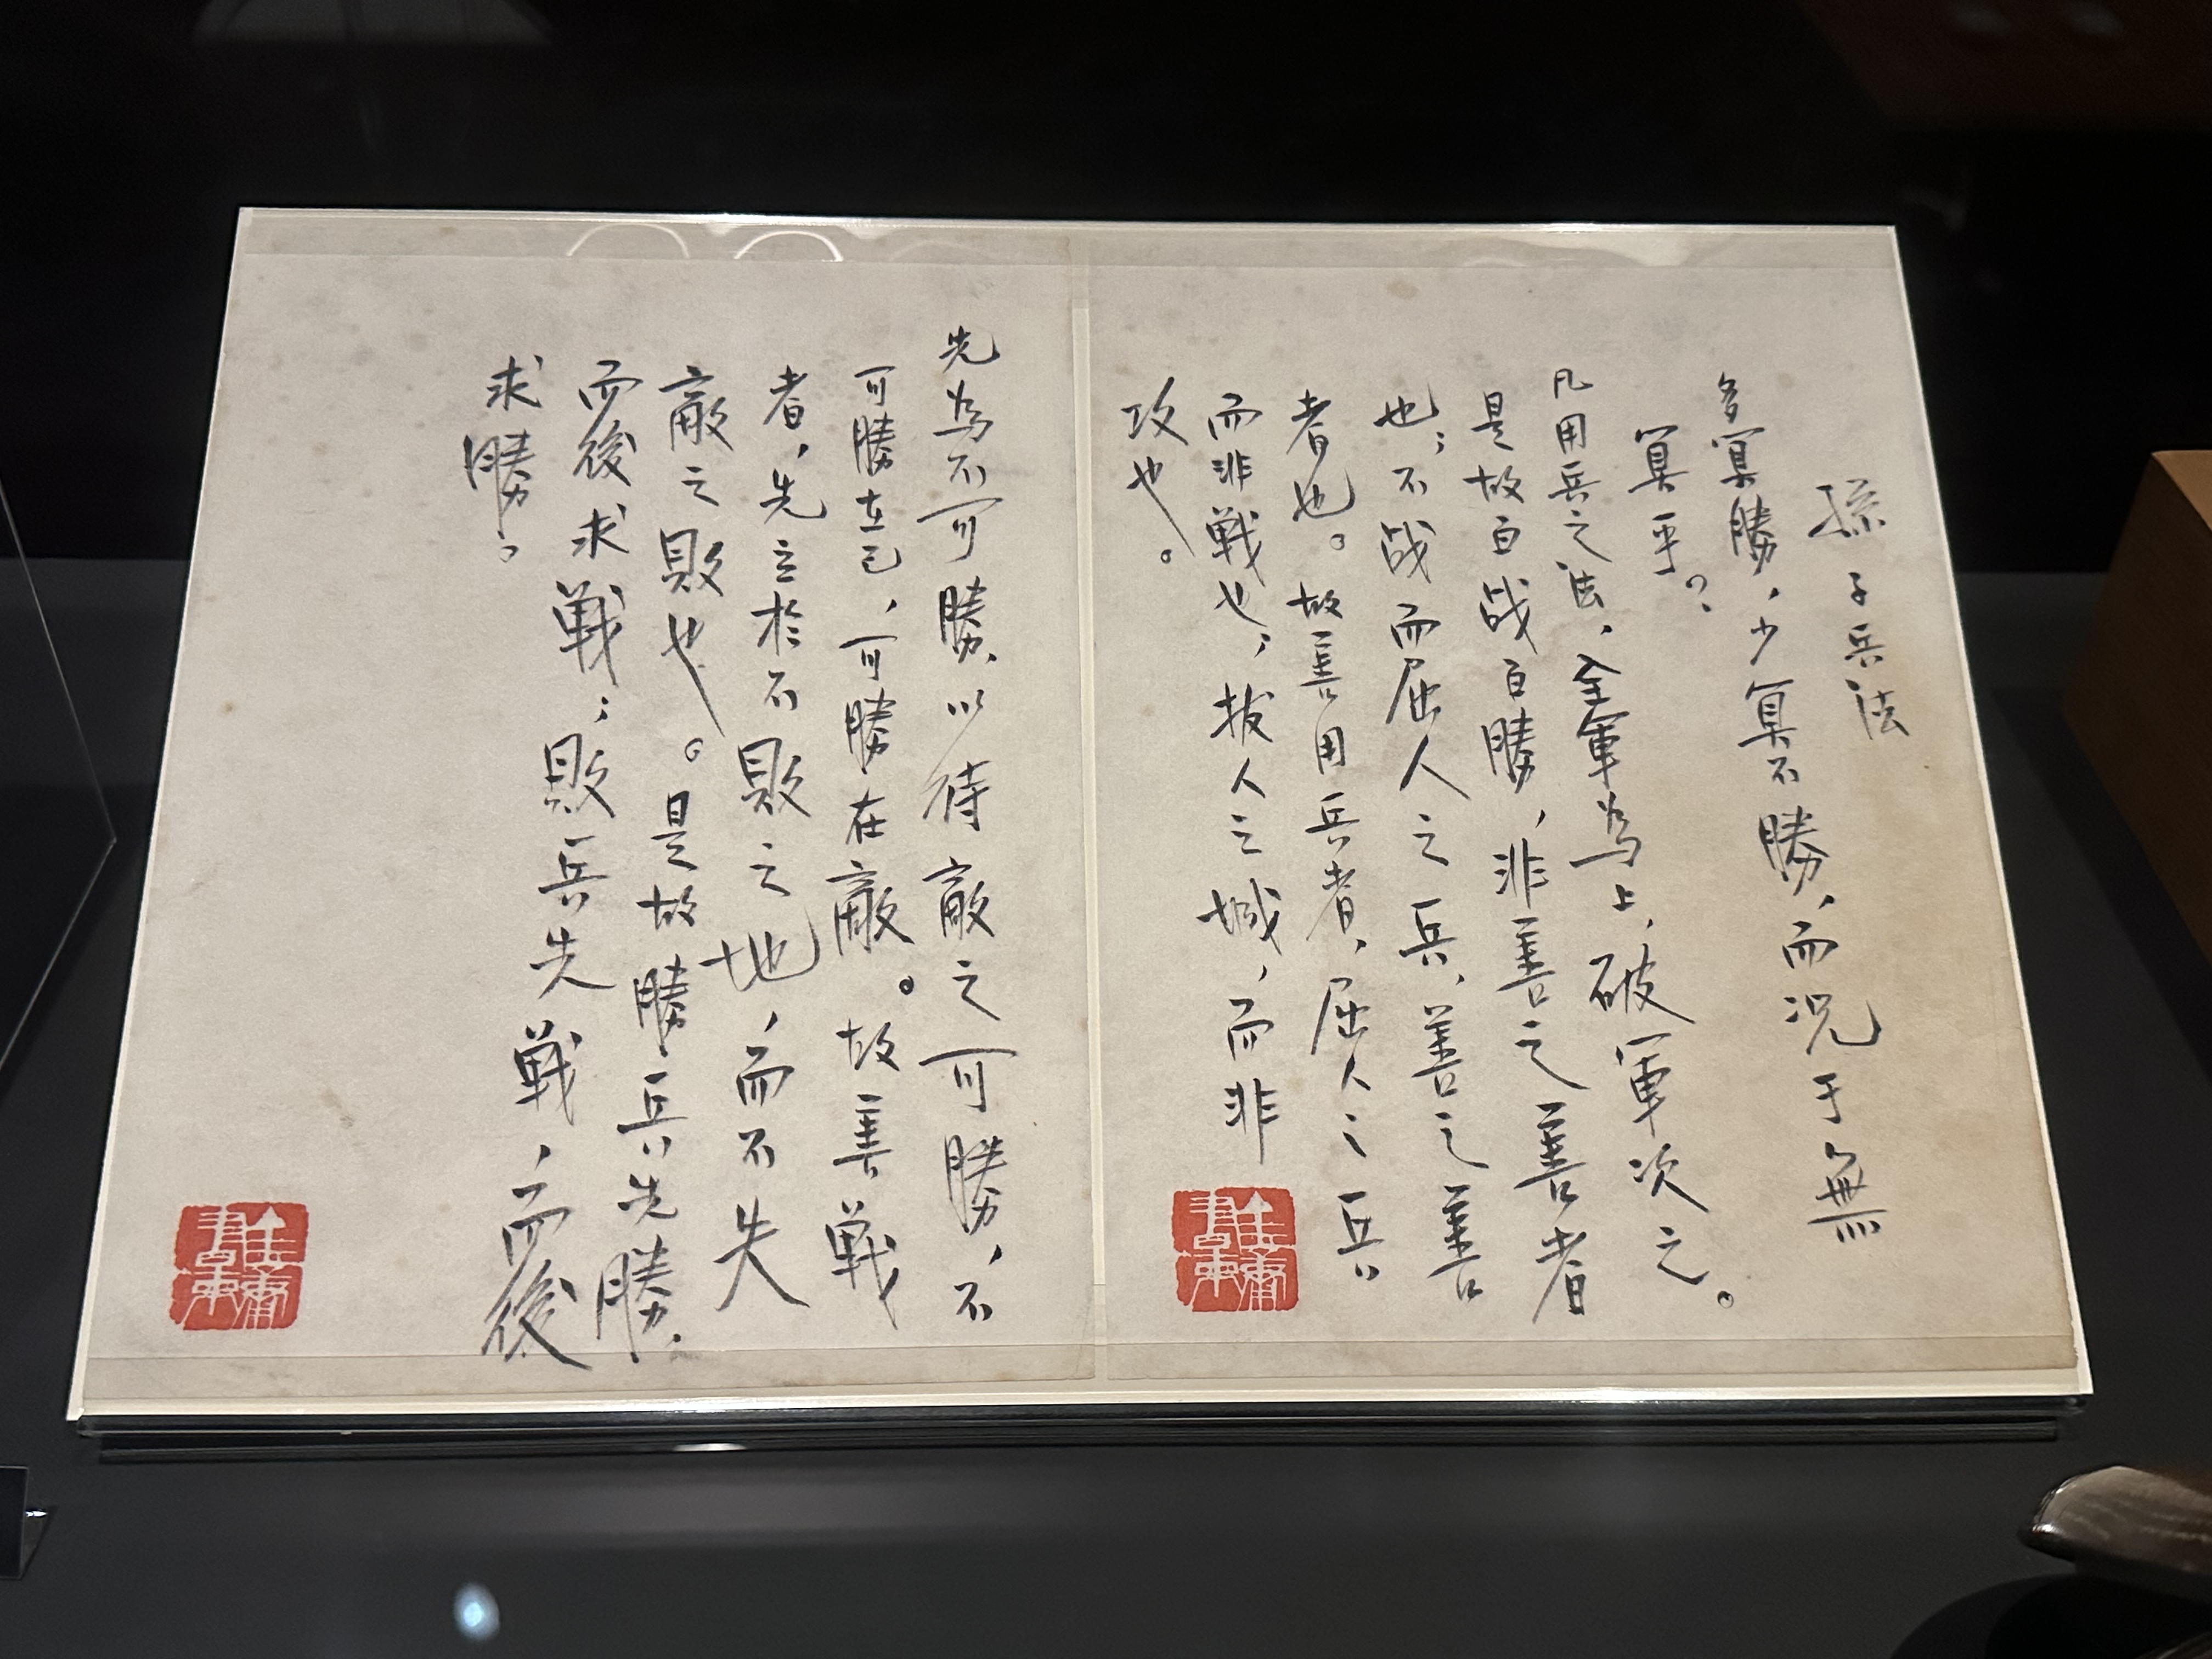 孫子兵法
多算勝，少算不勝，而況于無
算乎？
凡用兵之法，全軍為上，破軍次之。
是故百战百勝，非善之善者
也；不战而屈人之兵，善之善
者也。故善用兵者，屈人之兵
而非戰也；拔人之城，而非
攻也。
先為不可勝，以待敵之可勝，不
可勝在己，可勝在敵。故善戰
者，先立於不敗之地，而不失
敵之敗也。是故勝兵先勝，
而後求戰；敗兵先戰，而後
求勝。